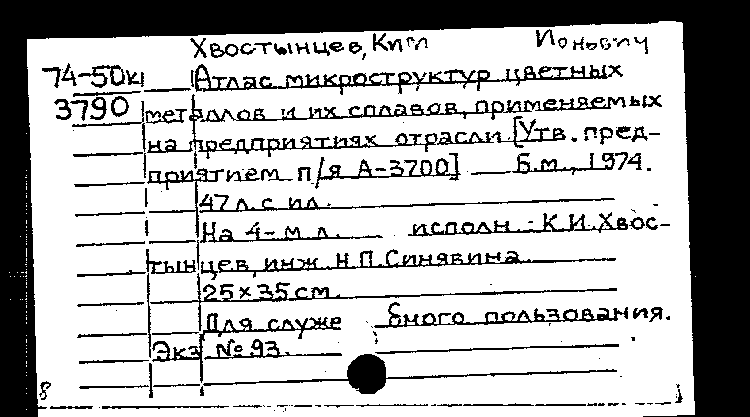 Хвостынцев, Ким Ионович
74-50к Атлас микроструктур цветных
3790 металлов и их сплавов, применяемых
на предприятиях отрасли. [Утв. пред-
приятием п/я А-3700] Б.м., 1974.
47 л. с ил.
На 4-м л. исполн.: К.И. Хвос-
тынцев, инж. Н.П. Синявина
25×35 см.
Для служебного пользования.
Экз № 93.
8